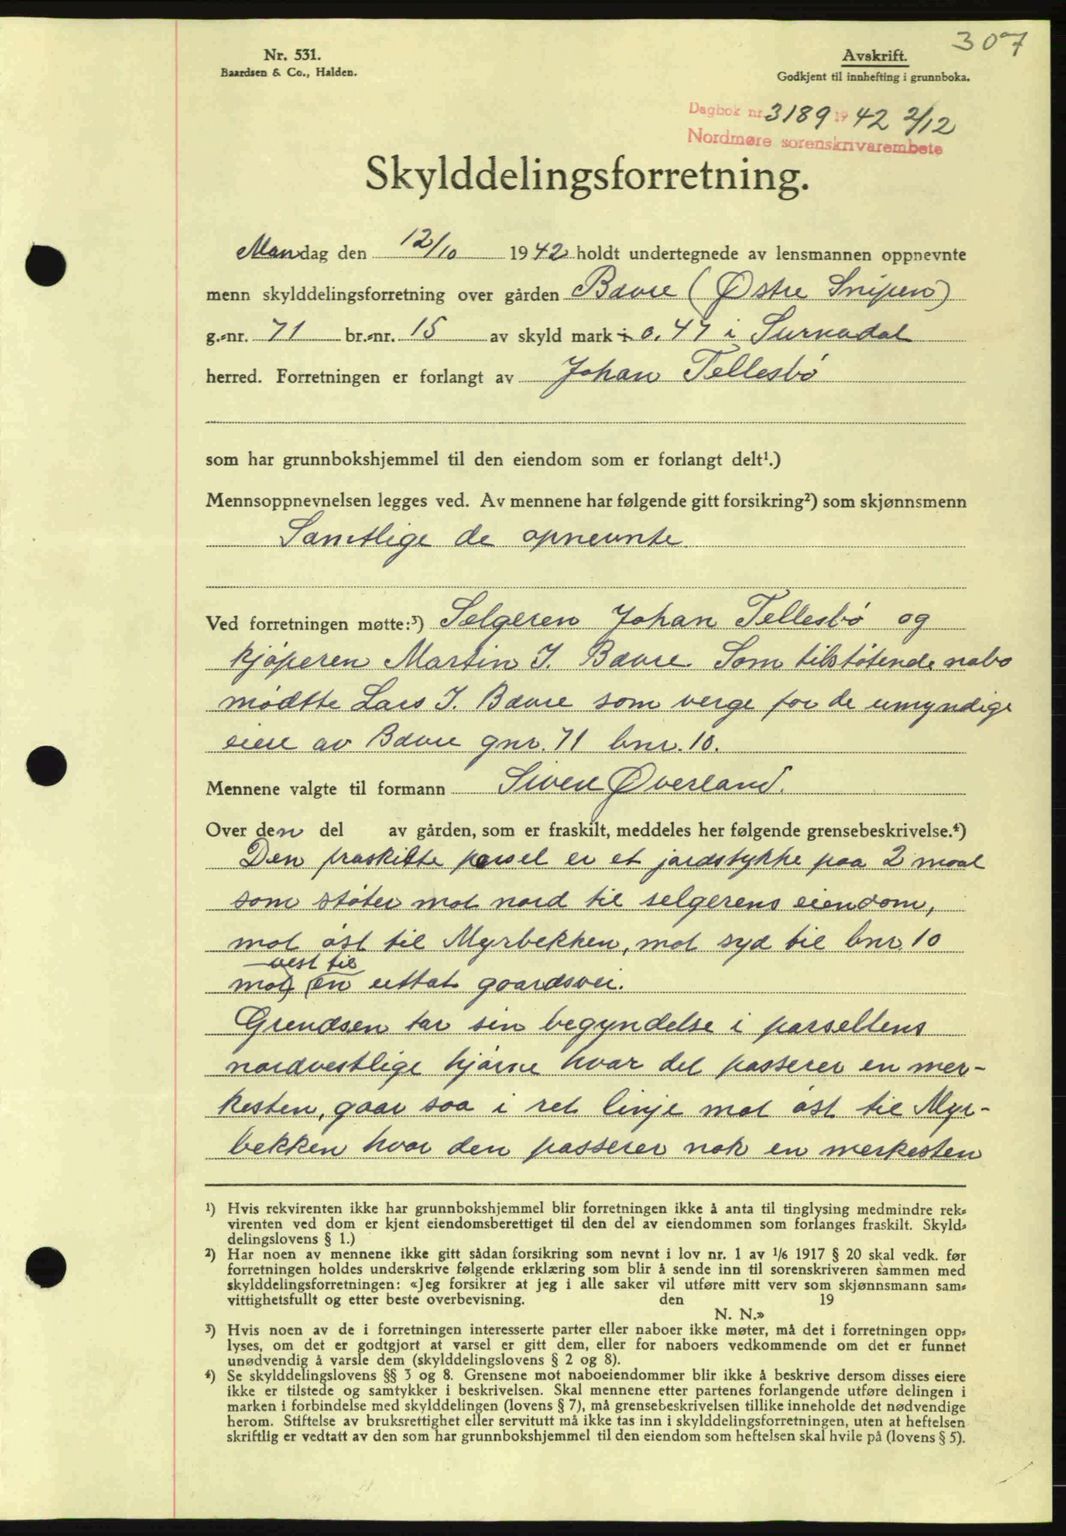 307
Nr. 531.
Baardsen & Co., Halden.
Avskrift.
Godkjent til innhefting i grunnboka.
Dagbok nr 3189 1942 2/12
Nordmøre sorenskrivarembete
Skylddelingsforretning.
Mandag den 12/10 1942 holdt undertegnede av lensmannen oppnevnte
menn skylddelingsforretning over gården Bævre (Østre Snipen)
g.-nr. 71 br.-nr. 15 av skyld mark 0.47 i Surnadal
herred. Forretningen er forlangt av Johan Tellesbø
som har grunnbokshjemmel til den eiendom som er forlangt delt¹.)
Mennsoppnevnelsen legges ved. Av mennene har følgende gitt forsikring²) som skjønnsmenn
Samtlige de opnevnte
Ved forretningen møtte:³) Selgeren Johan Tellesbø og
kjøperen Martin J. Bævre. Som tilstøtende nabo
mødtte Lars J. Bævre som verge for de umyndige
eiere av Bævre gnr. 71 bnr. 10.
Mennene valgte til formann Siver Øverland.
Over den del av gården, som er fraskilt, meddeles her følgende grensebeskrivelse.⁴)
Den fraskilte parsel er et jordstykke paa 2 maal
som støter mot nord til selgerens eiendom,
mot øst til Myrbekken, mot syd til bnr. 10
vest til
mot en uttat gaardsvei.
Grendsen tar sin begyndelse i parsellens
nordvestlige hjørne hvor det passerer en mer-
kesten, gaar saa i ret linje mot øst til Myr-
bekken hvor den passerer nok en merkesten
¹) Hvis rekvirenten ikke har grunnbokshjemmel blir forretningen ikke å anta til tinglysing medmindre rek-
virenten ved dom er kjent eiendomsberettiget til den del av eiendommen som forlanges fraskilt. Skyld-
delingslovens § 1.)
²) Har noen av mennene ikke gitt sådan forsikring som nevnt i lov nr. 1 av 1/6 1917 § 20 skal vedk. før
forretningen holdes underskrive følgende erklæring som blir å sende inn til sorenskriveren sammen med
skylddelingsforretningen: «Jeg forsikrer at jeg i alle saker vil utføre mitt verv som skjønnsmann sam-
vittighetsfullt og etter beste overbevisning. den 19
N. N.»
³) Hvis noen av de i forretningen interesserte parter eller naboer ikke møter, må det i forretningen opp-
lyses, om det er godtgjort at varsel er gitt dem, eller for naboers vedkommende om det er funnet
unødvendig å varsle dem (skylddelingslovens § 2 og 8).
⁴) Se skylddelingslovens §§ 3 og 8. Grensene mot naboeiendommer blir ikke å beskrive dersom disses eiere
ikke er tilstede og samtykker i beskrivelsen. Skal mennene etter partenes forlangende utføre delingen i
marken i forbindelse med skylddelingen (lovens § 7), må grensebeskrivelsen tillike inneholde det nødvendige
herom. Stiftelse av bruksrettighet eller servitutt må ikke tas inn i skylddelingsforretningen, uten at heftelsen
skriftlig er vedtatt av den som har grunnbokshjemmel til den eiendom som heftelsen skal hvile på (lovens § 5).